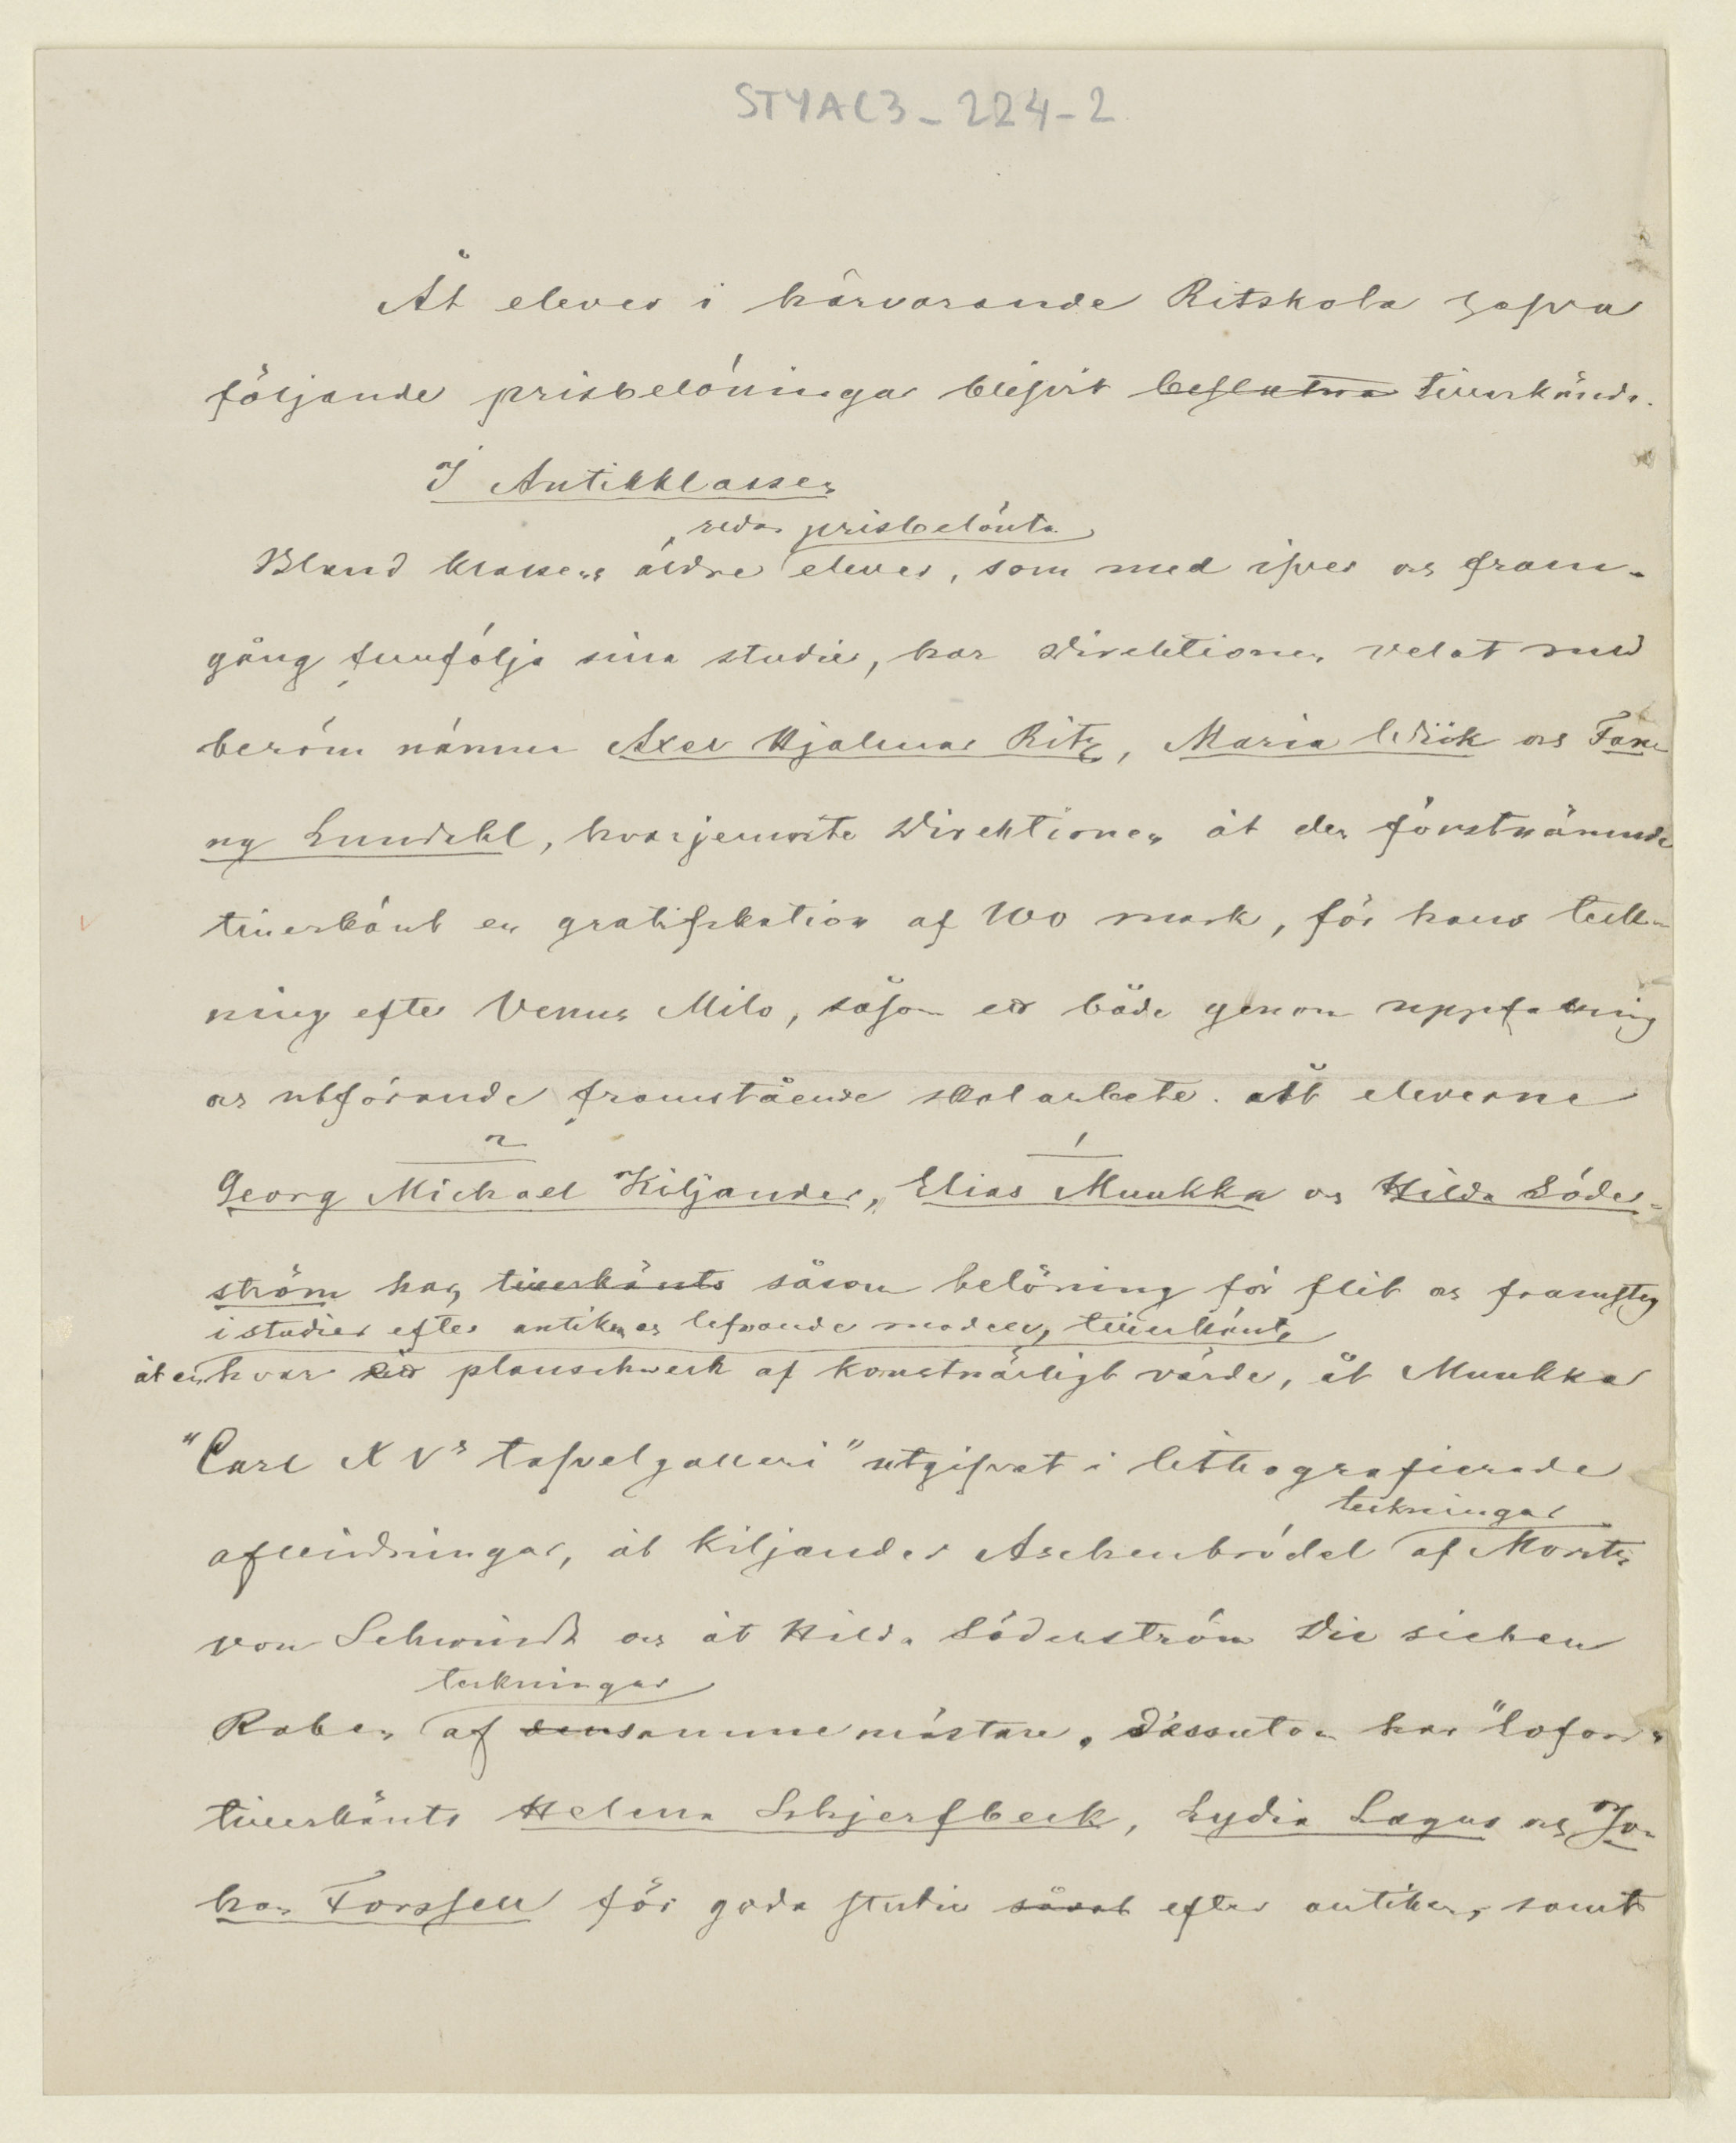 STYAC3-224-2
Åt elever i härvarande Ritskola hafva
följande prisbelöningar blifvit beslutna tillerkända.
I Antikklassen
redan prisbelönta
Bland klassens äldre elever, som med ifver och fram-
gång fullfölja sina studier, har Direktionen velat med
beröm nämna Axel Hjalmar Ritz, Maria Wiik och Fan
ny Lundahl, hvarjemte Direktionen åt den förstnämnde
tillerkänt en gratifikation af 100 mark, för hans teck-
ning efter Venus Milo, såsom ett både genom uppfattning
och utförande framstående skolarbete. Åt eleverne
2 1
Georg Michael Kiljander, Elias Muukka och Hilda Söder-
ström har, tillerkänts såsom belöning för flit och framsteg
i studier efter antiken och lefvande modell, tillerkänts
åt en hvar ett planschverk af konstnärligt värde, åt Muukka
"Carl XVs tafvelgalleri" utgifvet i lithografierade
teckningar
afbildningar, åt Kiljander Aschenbrödel af Moritz
von Schwindt och åt Hilda Söderström Die sieben
teckningar
Raben af densamme mästare. Dessutom har "Loford"
tillerkänts Helena Schjerfbeck, Lydia Lagus och Jo-
han Forssell för goda studier såväl efter antiken, samt